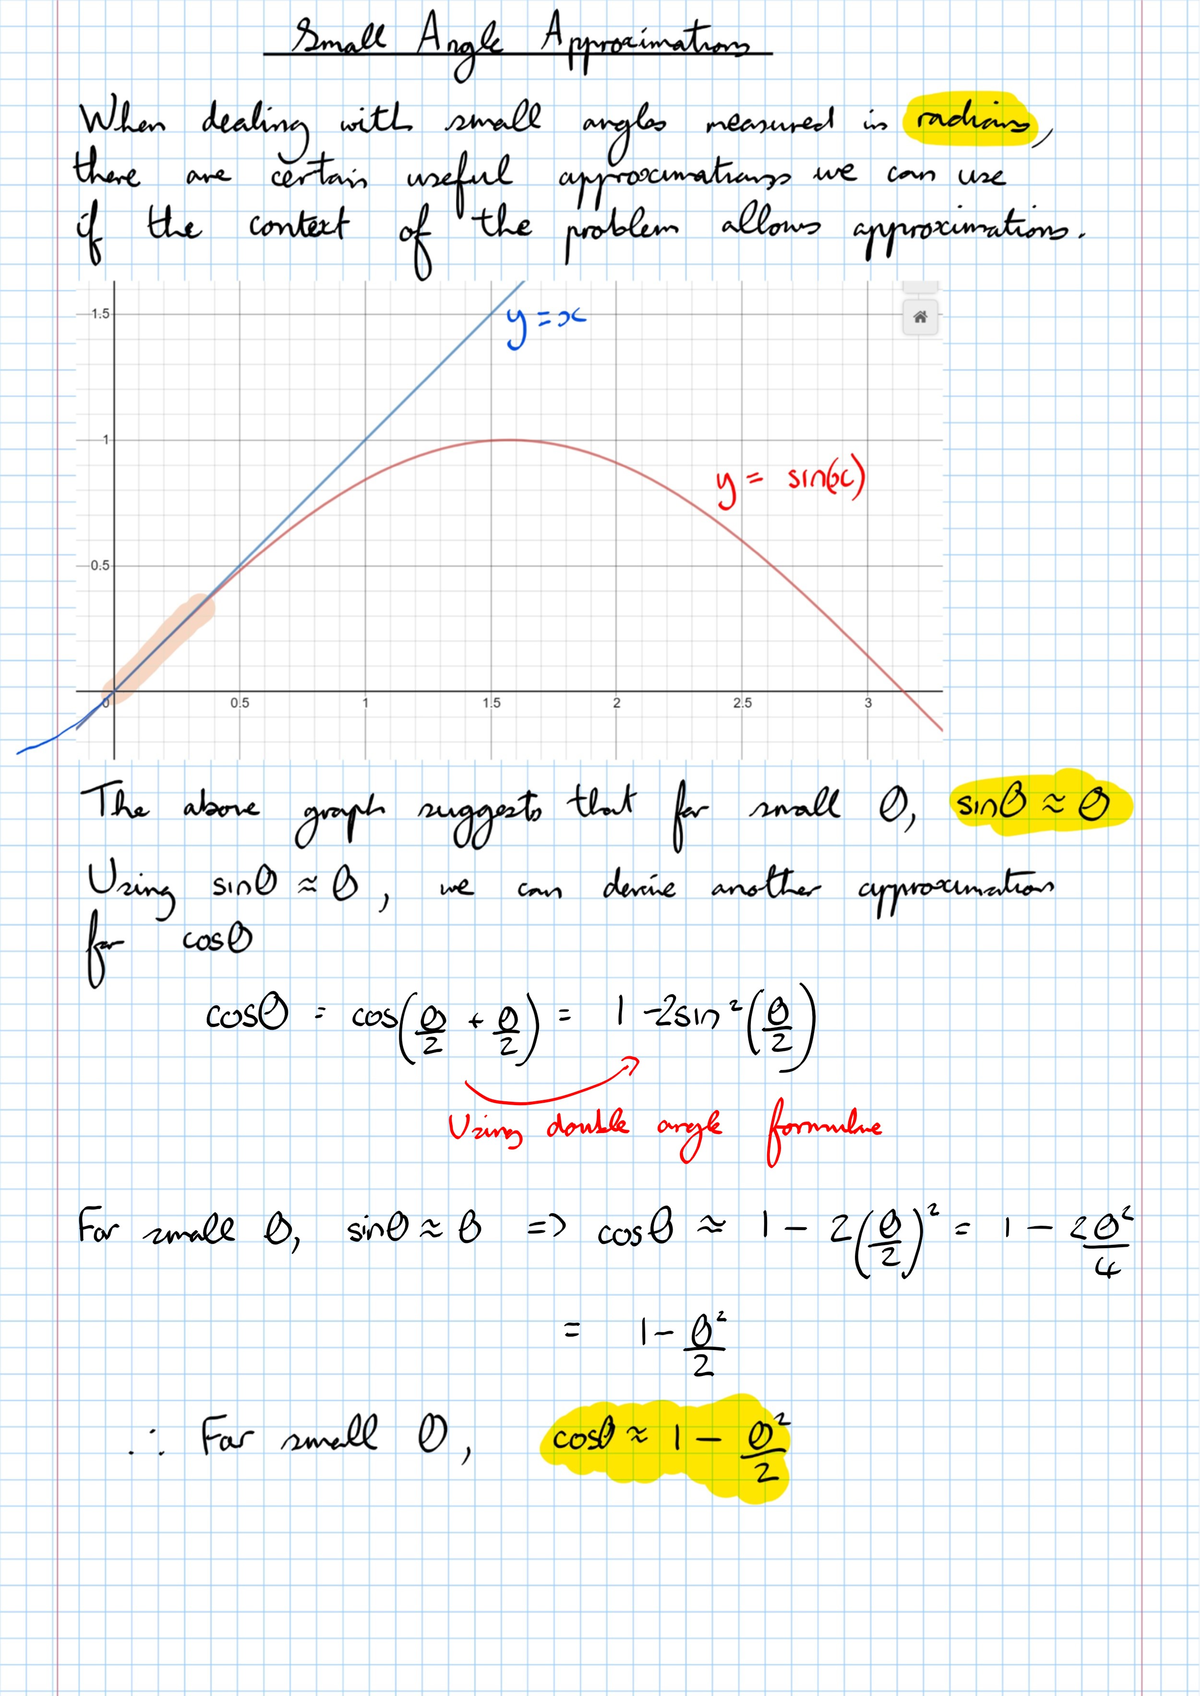 Small Angle Approximations
When dealing with small angles measured in radians,
there are certain useful approximations we can use
if the context of the problem allows approximations.
1.5
y = x
1
y = sin(x)
0.5
0 0.5 1 1.5 2 2.5 3
The above graph suggests that for small θ, sinθ ≈ θ
Using sinθ ≈ θ, we can derive another approximation
for cosθ
cosθ = cos(θ/2 + θ/2) = 1 - 2sin²(θ/2)
Using double angle formulae
For small θ, sinθ ≈ θ => cosθ ≈ 1 - 2(θ/2)² = 1 - 2θ²/4
= 1 - θ²/2
∴ For small θ, cosθ ≈ 1 - θ²/2